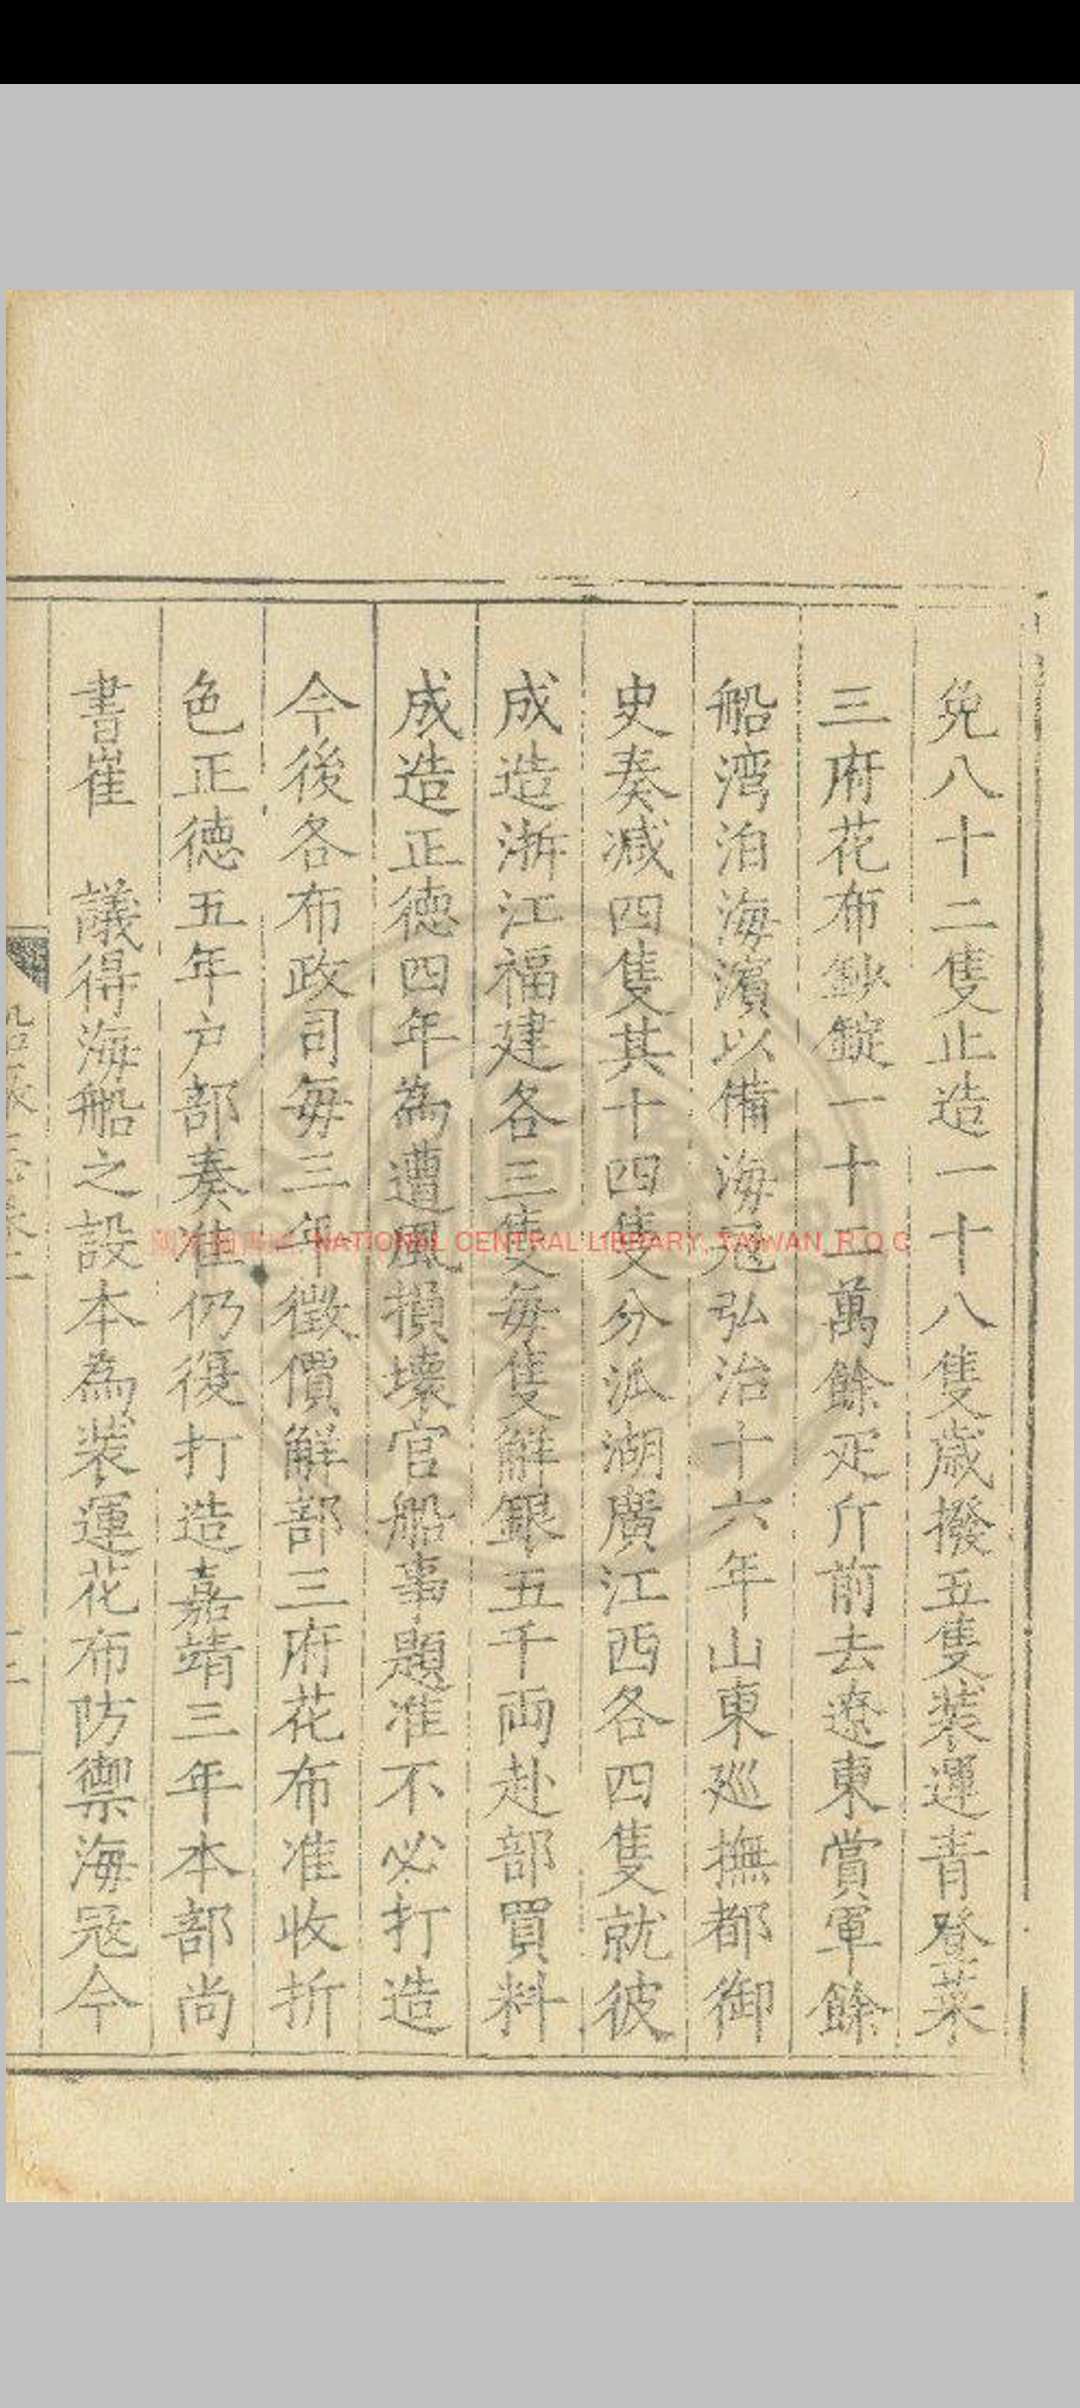 免八十二隻止造一十八隻歲撥五隻裝運青登萊
三府花布鈔錠一十二萬餘疋斤前去遼東賞軍餘
船湾泊海濱以備海冦弘治十六年山東廵撫都御
史奏减四隻其十四隻分派湖廣江西各四隻就彼
成造浙江福建各三隻每隻觧銀五千両赴部買料
成造正德四年為遭風損壊官船事題准不必打造
今後各布政司每三年徵價觧部三府花布准收折
色正德五年户部奏准仍復打造嘉靖三年本部尚
書崔　議得海船之設本為裝運花布防禦海冦今
NATIONAL CENTRAL LIBRARY, TAIWAN, R.O.C